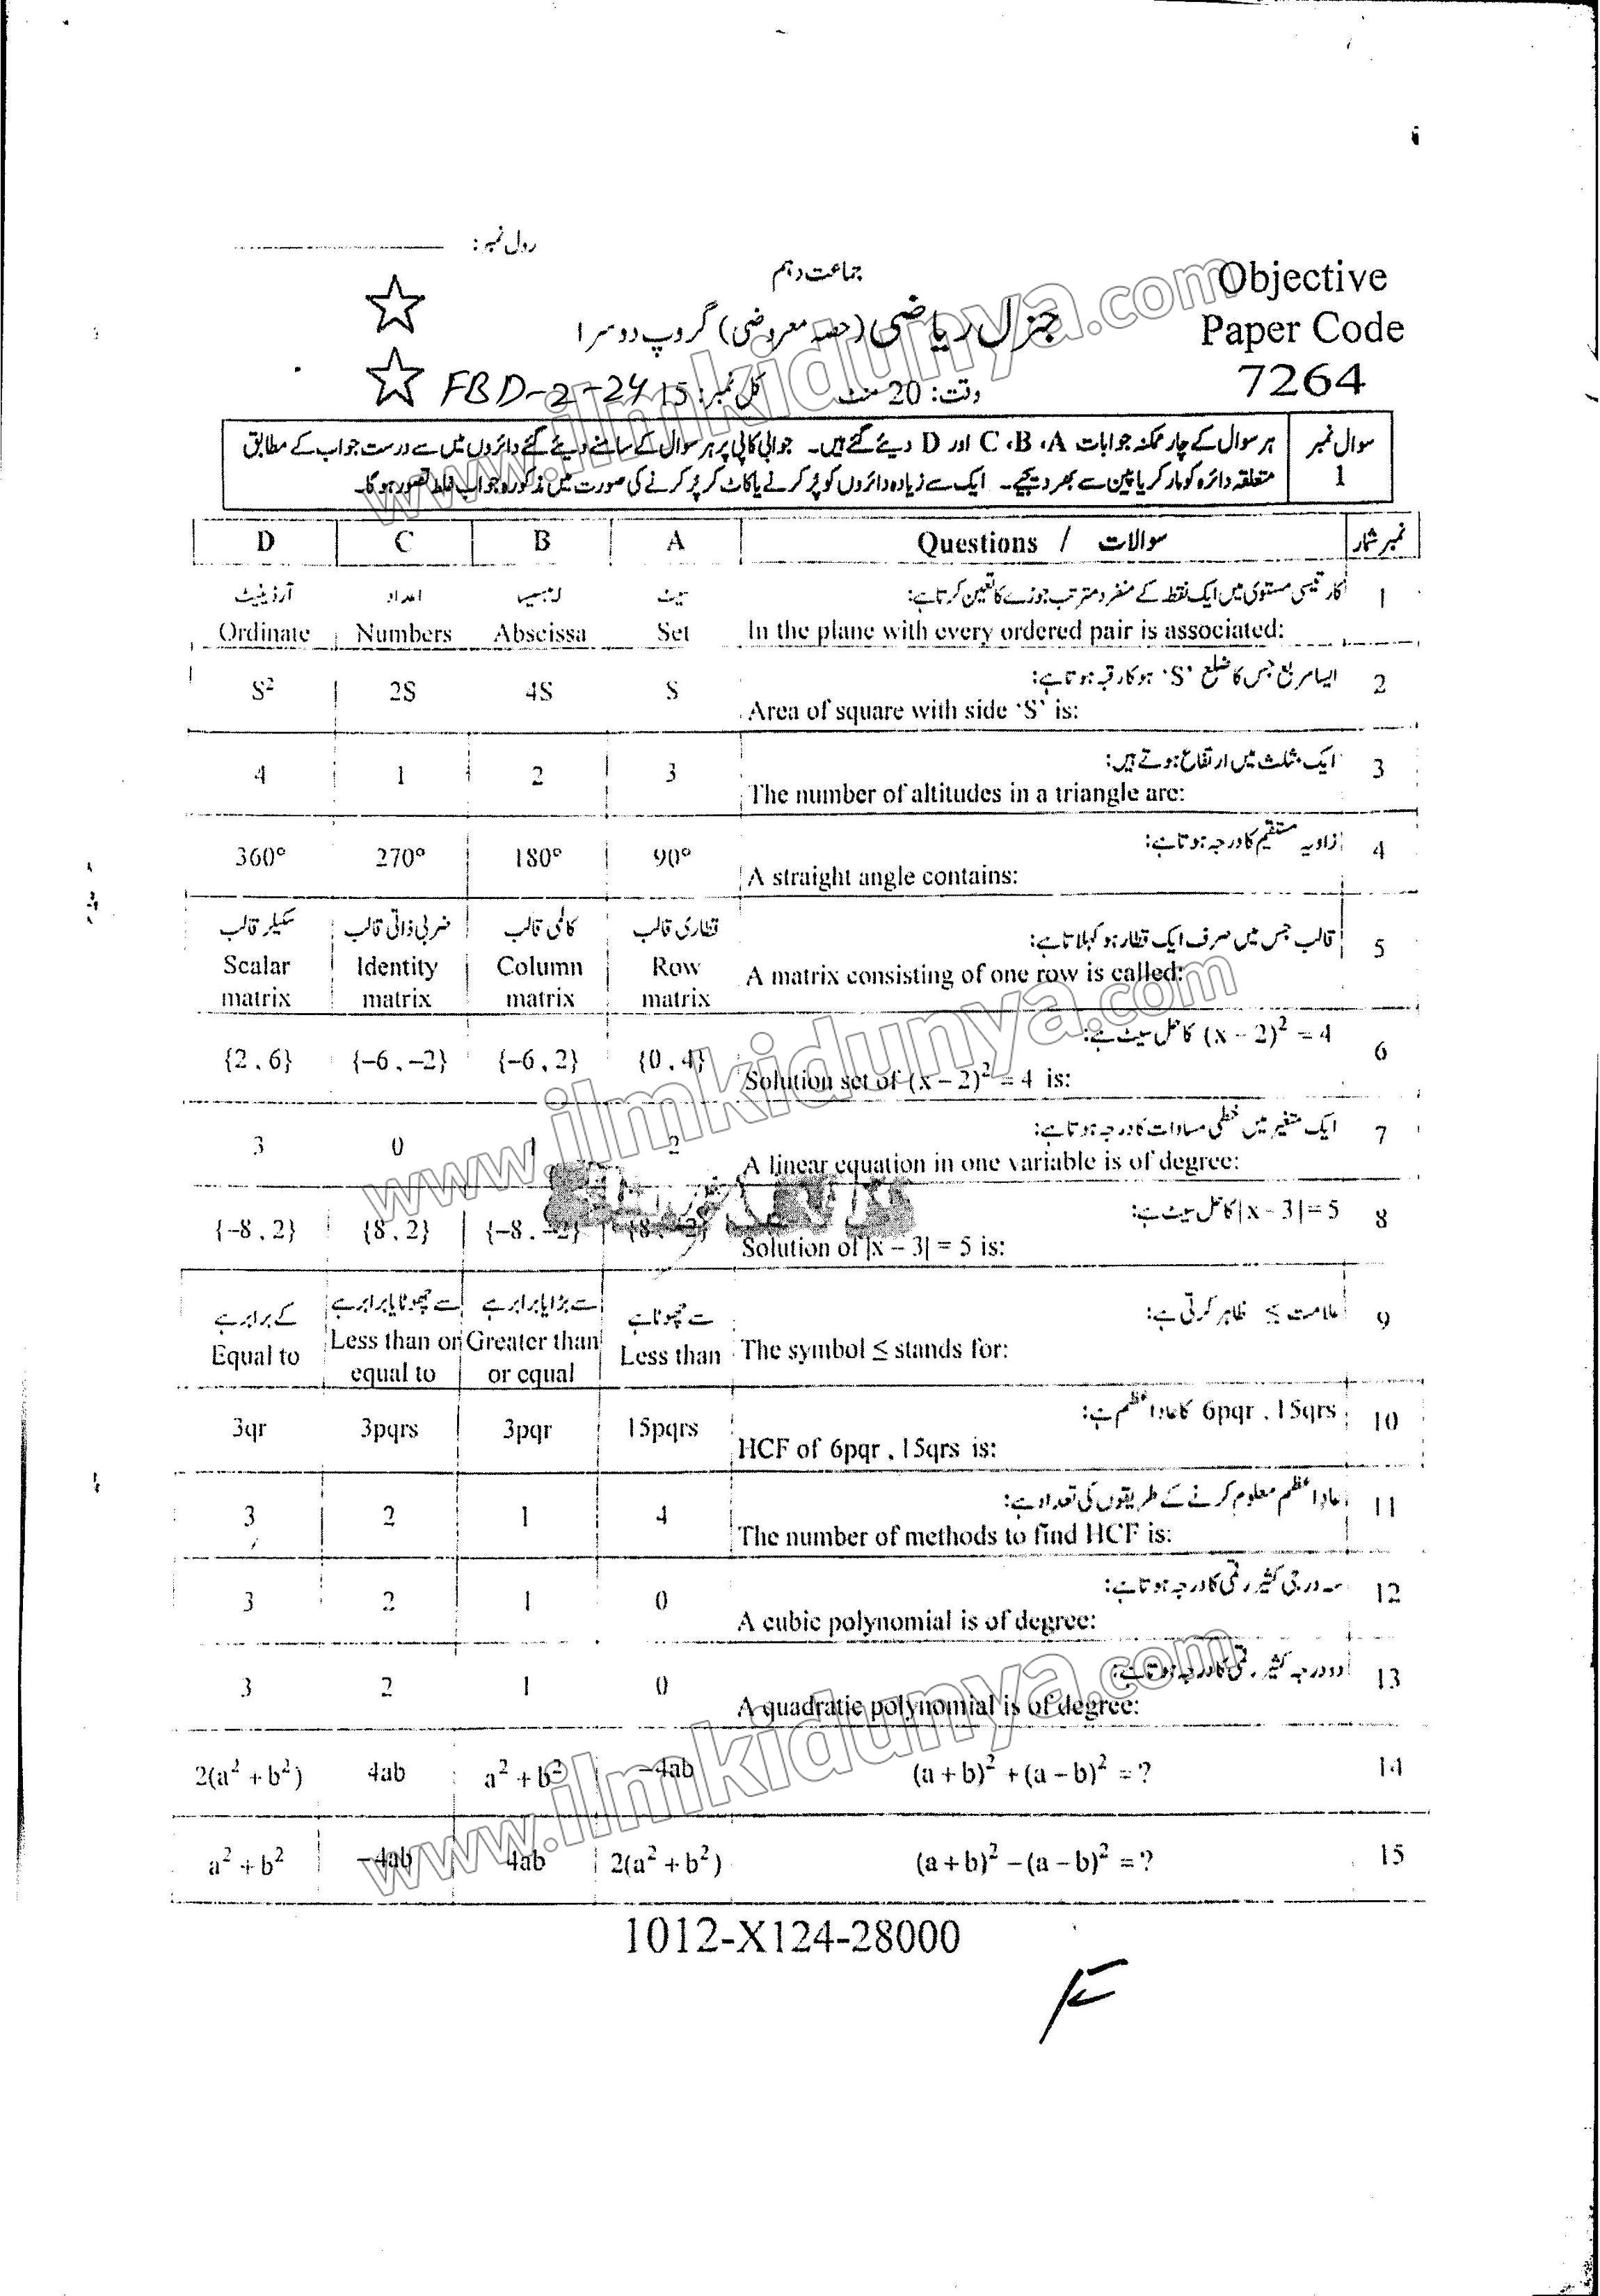 رول نمبر:
جماعت دہم
Objective
جنرل ریاضی (حصہ معروضی) گروپ دوسرا
Paper Code
7264
وقت: 20 منٹ کل نمبر: 15 FBD-2-24
سوال نمبر 1
ہر سوال کے چار ممکنہ جوابات A، B، C اور D دیئے گئے ہیں۔ جوابی کاپی پر ہر سوال کے سامنے دیئے گئے دائروں میں سے درست جواب کے مطابق
متعلقہ دائرہ کو مارکر یا پین سے بھر دیجیے۔ ایک سے زیادہ دائروں کو پُر کرنے یا کاٹ کر پُر کرنے کی صورت میں مذکورہ جواب غلط تصور ہوگا۔
نمبر شمار سوالات / Questions A B C D
1 کارتیسی مستوی میں ایک نقطہ کے منفرد مترتب جوڑے کا تعین کرتا ہے: سیٹ ایبسیسا اعداد آرڈینیٹ
In the plane with every ordered pair is associated: Set Abscissa Numbers Ordinate
2 ایسا مربع جس کا ضلع ‘S’ ہو کا رقبہ ہوتا ہے:
Area of square with side ‘S’ is: S 4S 2S S²
3 ایک مثلث میں ارتفاع ہوتے ہیں:
The number of altitudes in a triangle are: 3 2 1 4
4 زاویہ مستقیم کا درجہ ہوتا ہے:
A straight angle contains: 90° 180° 270° 360°
5 قالب جس میں صرف ایک قطار ہو کہلاتا ہے: قطاری قالب کالمی قالب ضربی ذاتی قالب سکیلر قالب
A matrix consisting of one row is called: Row matrix Column matrix Identity matrix Scalar matrix
6 (x – 2)² = 4 کا حل سیٹ ہے:
Solution set of (x – 2)² = 4 is: {0, 4} {–6, 2} {–6, –2} {2, 6}
7 ایک متغیر میں خطی مساوات کا درجہ ہوتا ہے:
A linear equation in one variable is of degree: 2 1 0 3
8 |x – 3| = 5 کا حل سیٹ ہے:
Solution of |x – 3| = 5 is: {8, –2} {–8, –2} {8, 2} {–8, 2}
9 علامت ≤ ظاہر کرتی ہے: سے چھوٹا ہے سے بڑا یا برابر ہے سے چھوٹا یا برابر ہے کے برابر ہے
The symbol ≤ stands for: Less than Greater than or equal Less than or equal to Equal to
10 6pqr , 15qrs کا عاداعظم ہے:
HCF of 6pqr , 15qrs is: 15pqrs 3pqr 3pqrs 3qr
11 عاداعظم معلوم کرنے کے طریقوں کی تعداد ہے:
The number of methods to find HCF is: 4 1 2 3
12 سہ درجی کثیر رقمی کا درجہ ہوتا ہے:
A cubic polynomial is of degree: 0 1 2 3
13 دو درجہ کثیر رقمی کا درجہ ہوتا ہے:
A quadratic polynomial is of degree: 0 1 2 3
14 (a + b)² + (a – b)² = ? –4ab a² + b² 4ab 2(a² + b²)
15 (a + b)² – (a – b)² = ? 2(a² + b²) 4ab –4ab a² + b²
1012-X124-28000
www.ilmkidunya.com
www.ilmkidunya.com
www.ilmkidunya.com